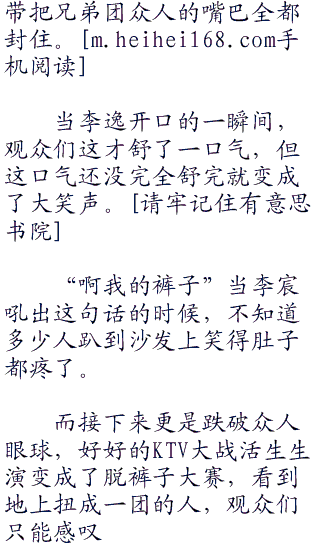 带把兄弟团众人的嘴巴全都
封住。[m.heihei168.com手
机阅读]
当李逸开口的一瞬间，
观众们这才舒了一口气，但
这口气还没完全舒完就变成
了大笑声。[请牢记住有意思
书院]
“啊我的裤子”当李宸
吼出这句话的时候，不知道
多少人趴到沙发上笑得肚子
都疼了。
而接下来更是跌破众人
眼球，好好的KTV大战活生生
演变成了脱裤子大赛，看到
地上扭成一团的人，观众们
只能感叹